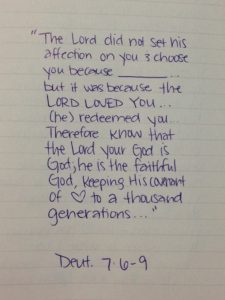 "The Lord did not set his
affection on you & choose
you because ________...
but it was because the
LORD LOVED YOU...
(he) redeemed you...
Therefore know that
the Lord your God is
God; he is the faithful
God, keeping His covenant
of ♡ to a thousand
generations..."
Deut. 7:6-9